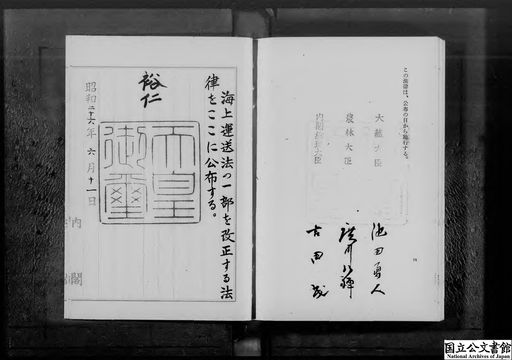 この法律は、公布の日から施行する。
大蔵大臣
池田勇人
農林大臣
廣川弘禅
内閣総理大臣
吉田茂
海上運送法の一部を改正する法
律をここに公布する。
裕仁
天皇
御璽
昭和二十六年六月十一日
内閣
国立公文書館
National Archives of Japan